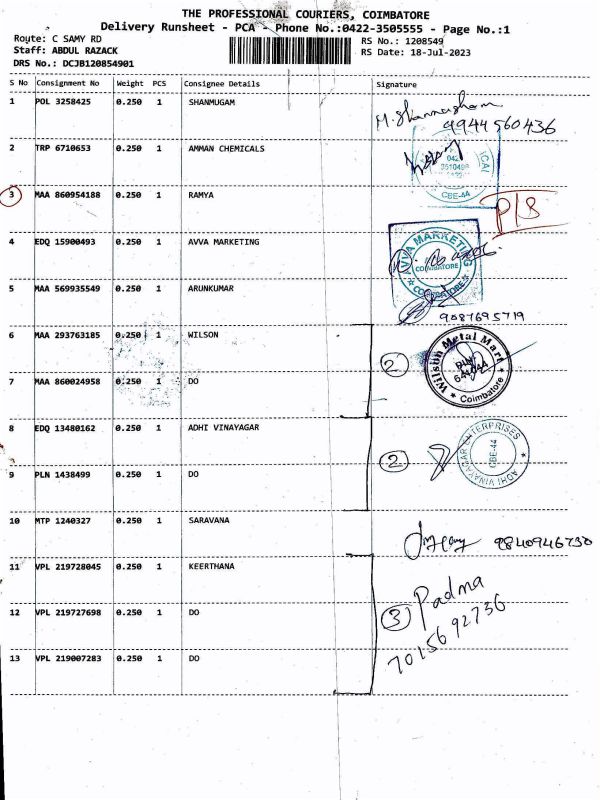 THE PROFESSIONAL COURIERS, COIMBATORE
Delivery Runsheet - PCA - Phone No.:0422-3505555 - Page No.:1
Route: C SAMY RD
RS No.: 1208549
Staff: ABDUL RAZACK
RS Date: 18-Jul-2023
DRS No.: DCJB120854901
S No Consignment No Weight PCS Consignee Details Signature
1 POL 3258425 0.250 1 SHANMUGAM
M. Shanmugham
9944560436
2 TRP 6710653 0.250 1 AMMAN CHEMICALS
CBE-44
3 MAA 860954188 0.250 1 RAMYA
P/S
4 EDQ 15900493 0.250 1 AVVA MARKETING
AVVA MARKETING
COIMBATORE
COIMBATORE
5 MAA 569935549 0.250 1 ARUNKUMAR
9087695719
6 MAA 293763185 0.250 1 WILSON
2
Wilson Metal Mart
Coimbatore
7 MAA 860024958 0.250 1 DO
8 EDQ 13480162 0.250 1 ADHI VINAYAGAR
2
ADHI VINAYAGAR ENTERPRISES
CBE-44
9 PLN 1438499 0.250 1 DO
10 MTP 1240327 0.250 1 SARAVANA
9840946730
11 VPL 219728045 0.250 1 KEERTHANA
12 VPL 219727698 0.250 1 DO
3 Padma
7015692736
13 VPL 219007283 0.250 1 DO